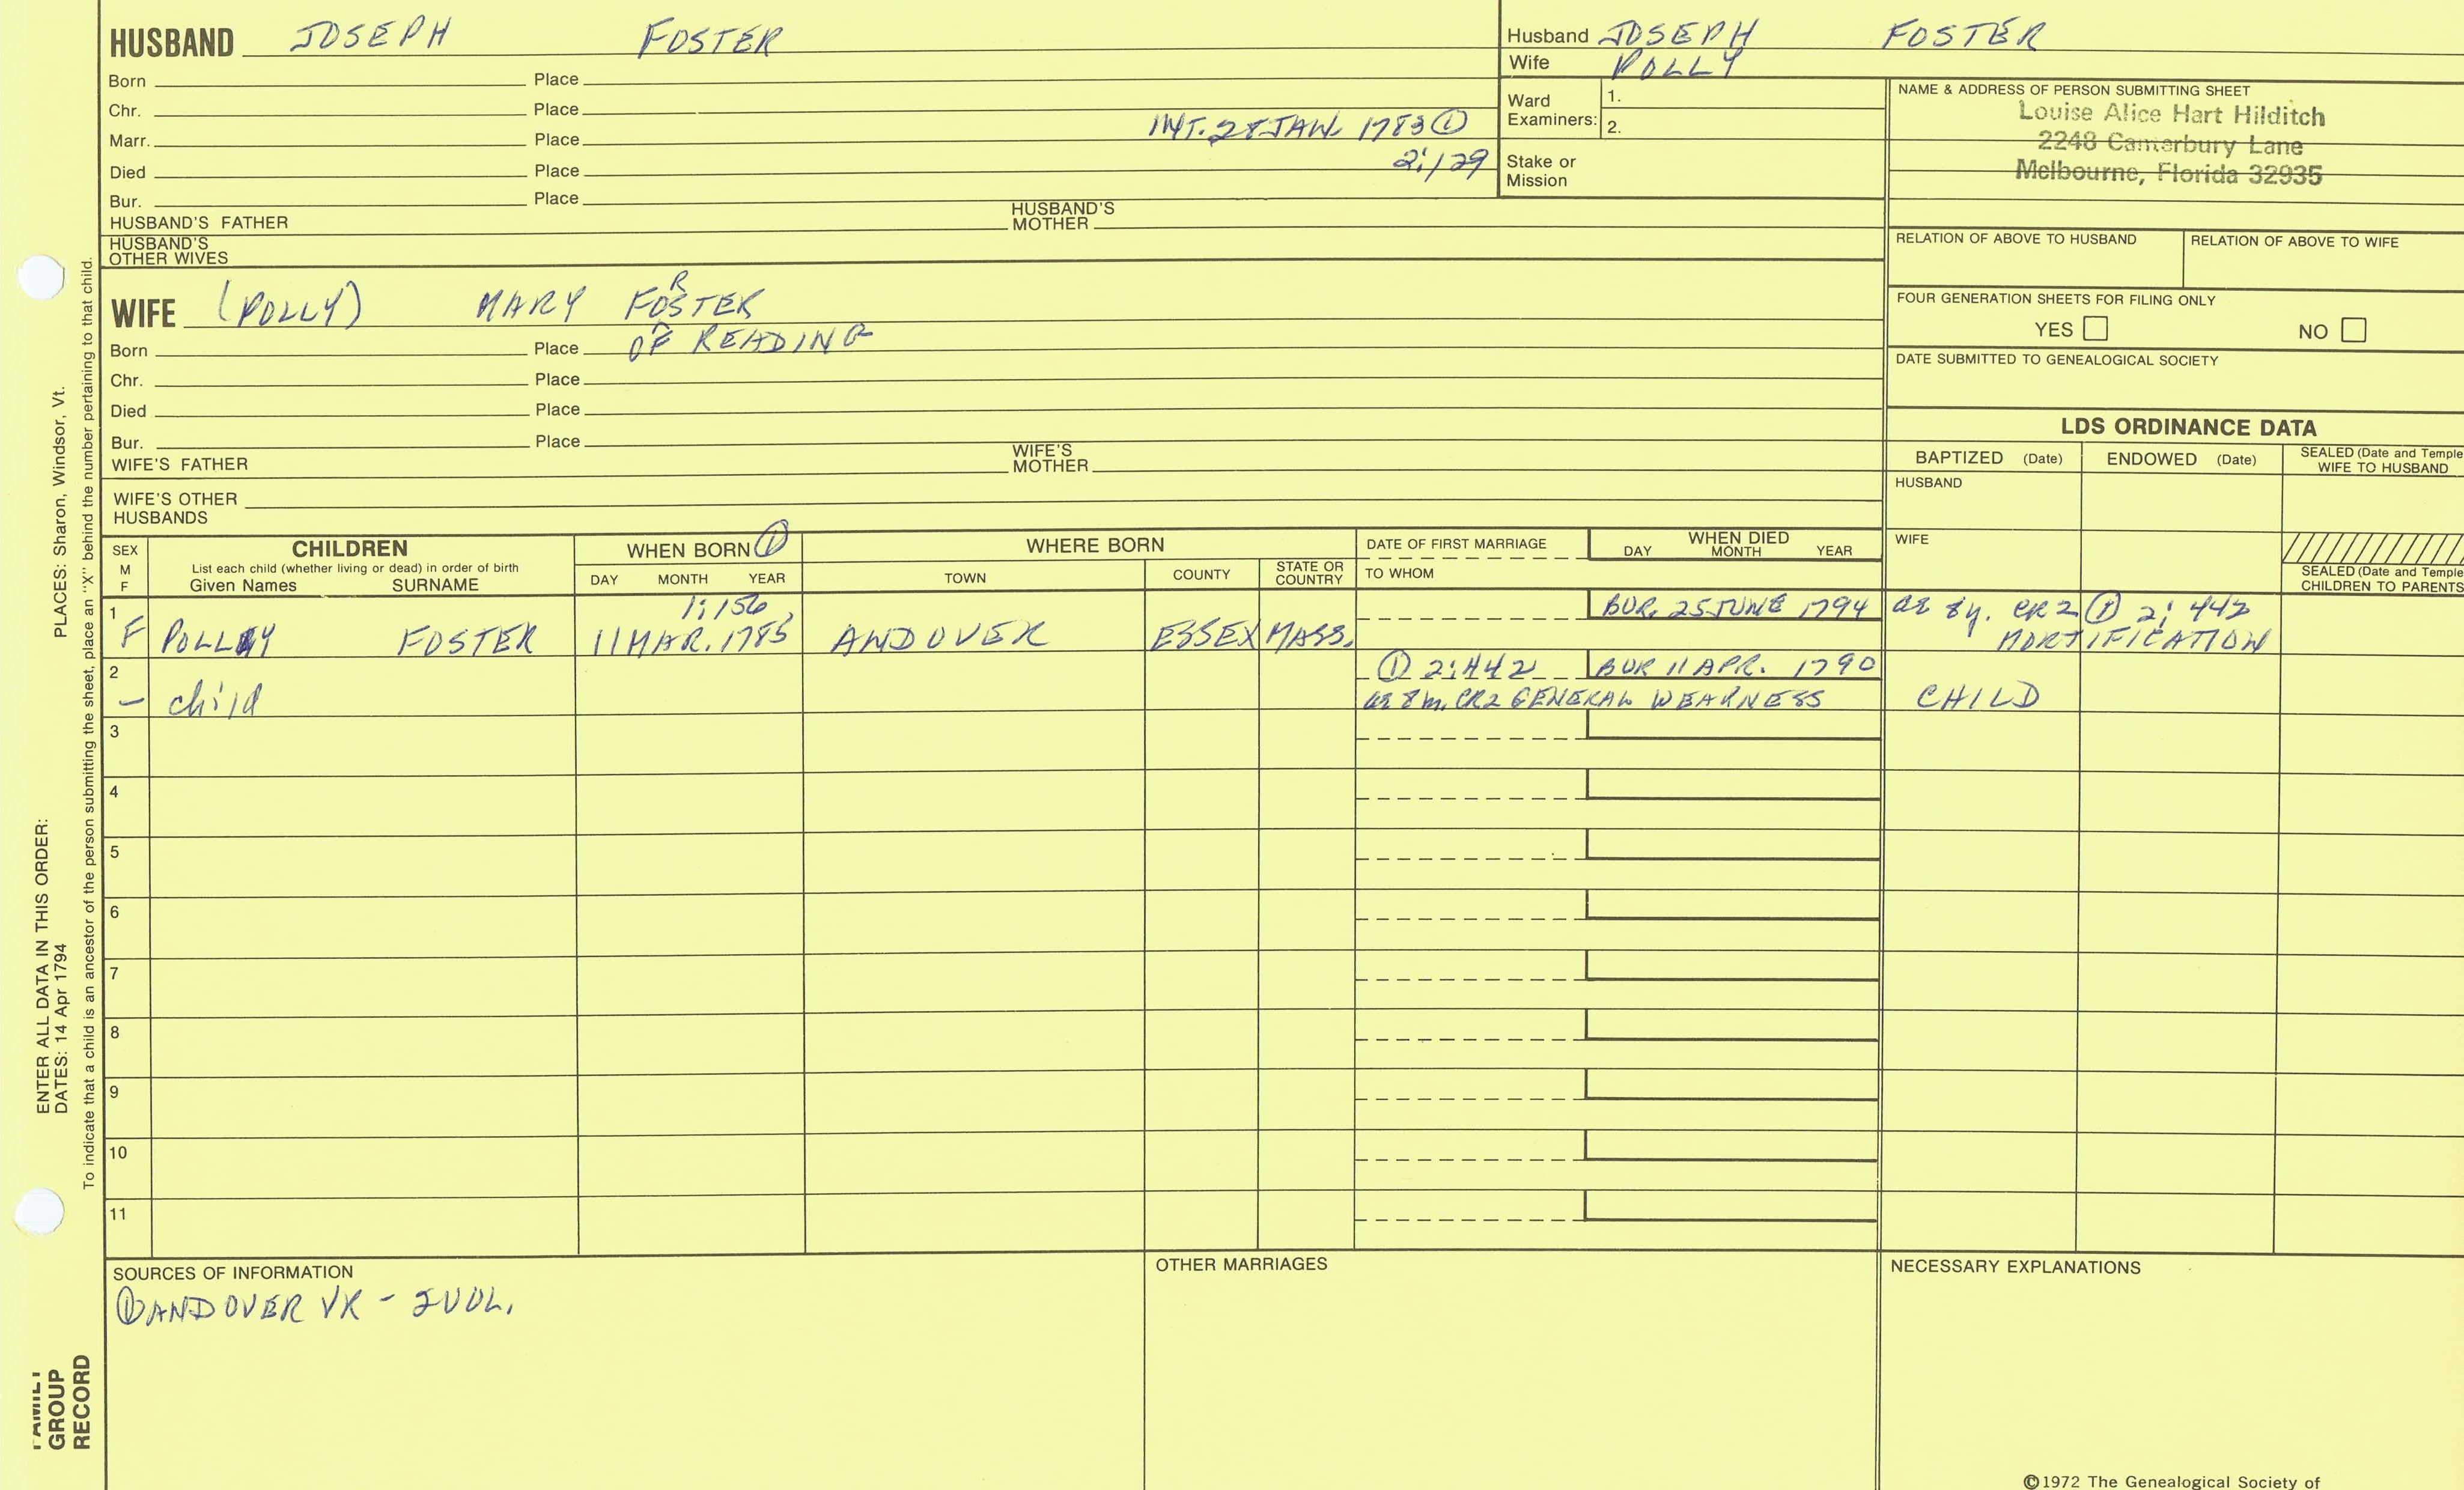 HUSBAND JOSEPH FOSTER
Born Place
Chr. Place
Marr. Place INT. 28 JAN. 1783 ①
Died Place 2:129
Bur. Place
HUSBAND'S FATHER HUSBAND'S MOTHER
HUSBAND'S OTHER WIVES
Husband JOSEPH FOSTER
Wife POLLY
Ward Examiners: 1.
2.
Stake or Mission
NAME & ADDRESS OF PERSON SUBMITTING SHEET
Louise Alice Hart Hilditch
2248 Canterbury Lane
Melbourne, Florida 32935
RELATION OF ABOVE TO HUSBAND RELATION OF ABOVE TO WIFE
FOUR GENERATION SHEETS FOR FILING ONLY
YES NO
DATE SUBMITTED TO GENEALOGICAL SOCIETY
R
WIFE (POLLY) MARY FOSTER
Born Place OF READING
Chr. Place
Died Place
Bur. Place
WIFE'S FATHER WIFE'S MOTHER
WIFE'S OTHER HUSBANDS
LDS ORDINANCE DATA
BAPTIZED (Date) ENDOWED (Date) SEALED (Date and Temple
WIFE TO HUSBAND
HUSBAND
WIFE
SEALED (Date and Temple
CHILDREN TO PARENTS
SEX M F CHILDREN WHEN BORN ① WHERE BORN DATE OF FIRST MARRIAGE WHEN DIED
List each child (whether living or dead) in order of birth
Given Names SURNAME DAY MONTH YEAR TOWN COUNTY STATE OR COUNTRY TO WHOM DAY MONTH YEAR
1 1:156 BUR. 25 JUNE 1794 ae 8y. CR2 ① 2:442
F POLLY FOSTER 11 MAR. 1785 ANDOVER ESSEX MASS. MORTIFICATION
2 ① 2:442 BUR 11 APR. 1790
- child ae 8m. CR2 GENERAL WEAKNESS CHILD
3
4
5
6
7
8
9
10
11
SOURCES OF INFORMATION OTHER MARRIAGES NECESSARY EXPLANATIONS
① ANDOVER VR - 2 VOL.
©1972 The Genealogical Society of
ENTER ALL DATA IN THIS ORDER:
DATES: 14 Apr 1794 PLACES: Sharon, Windsor, Vt.
To indicate that a child is an ancestor of the person submitting the sheet, place an "X" behind the number pertaining to that child.
FAMILY
GROUP
RECORD